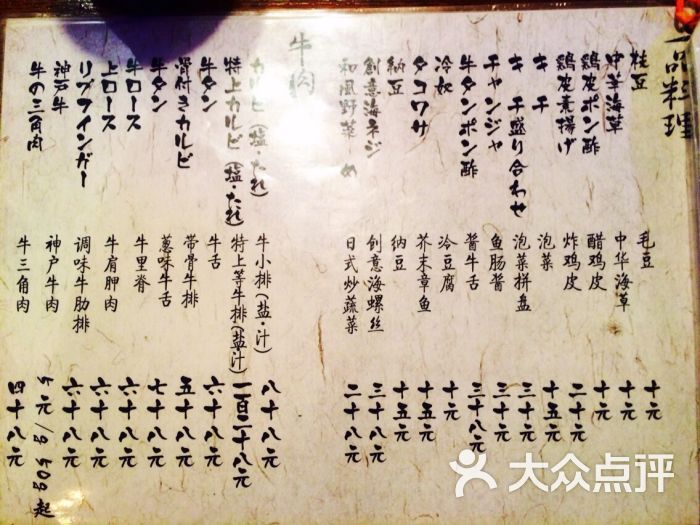 一品料理
枝豆 毛豆 十元
中華海草 中华海草 十元
鶏皮ポン酢 醋鸡皮 十元
鶏皮素揚げ 炸鸡皮 二十元
キ チ 泡菜 十五元
キ チ盛り合わせ 泡菜拼盘 三十元
チャンジャ 鱼肠酱 三十元
牛タンポン酢 酱牛舌 三十八元
冷奴 冷豆腐 十元
タコワサ 芥末章鱼 十五元
納豆 纳豆 十五元
創意海ネジ 创意海螺丝 三十八元
和風野菜 め 日式炒蔬菜 二十八元
牛肉
カルビ(塩・たれ) 牛小排(盐·汁) 八十八元
特上カルビ(塩・たれ) 特上等牛排(盐·汁) 一百二十八元
牛タン 牛舌 六十八元
骨付きカルビ 带骨牛排 五十八元
牛タン 葱味牛舌 七十八元
牛ロース 牛里脊 六十八元
上ロース 牛肩胛肉 六十八元
リブフインガー 调味牛肋排 六十八元
神戸牛 神户牛肉 元/50g起
牛の三角肉 牛三角肉 四十八元
大众点评